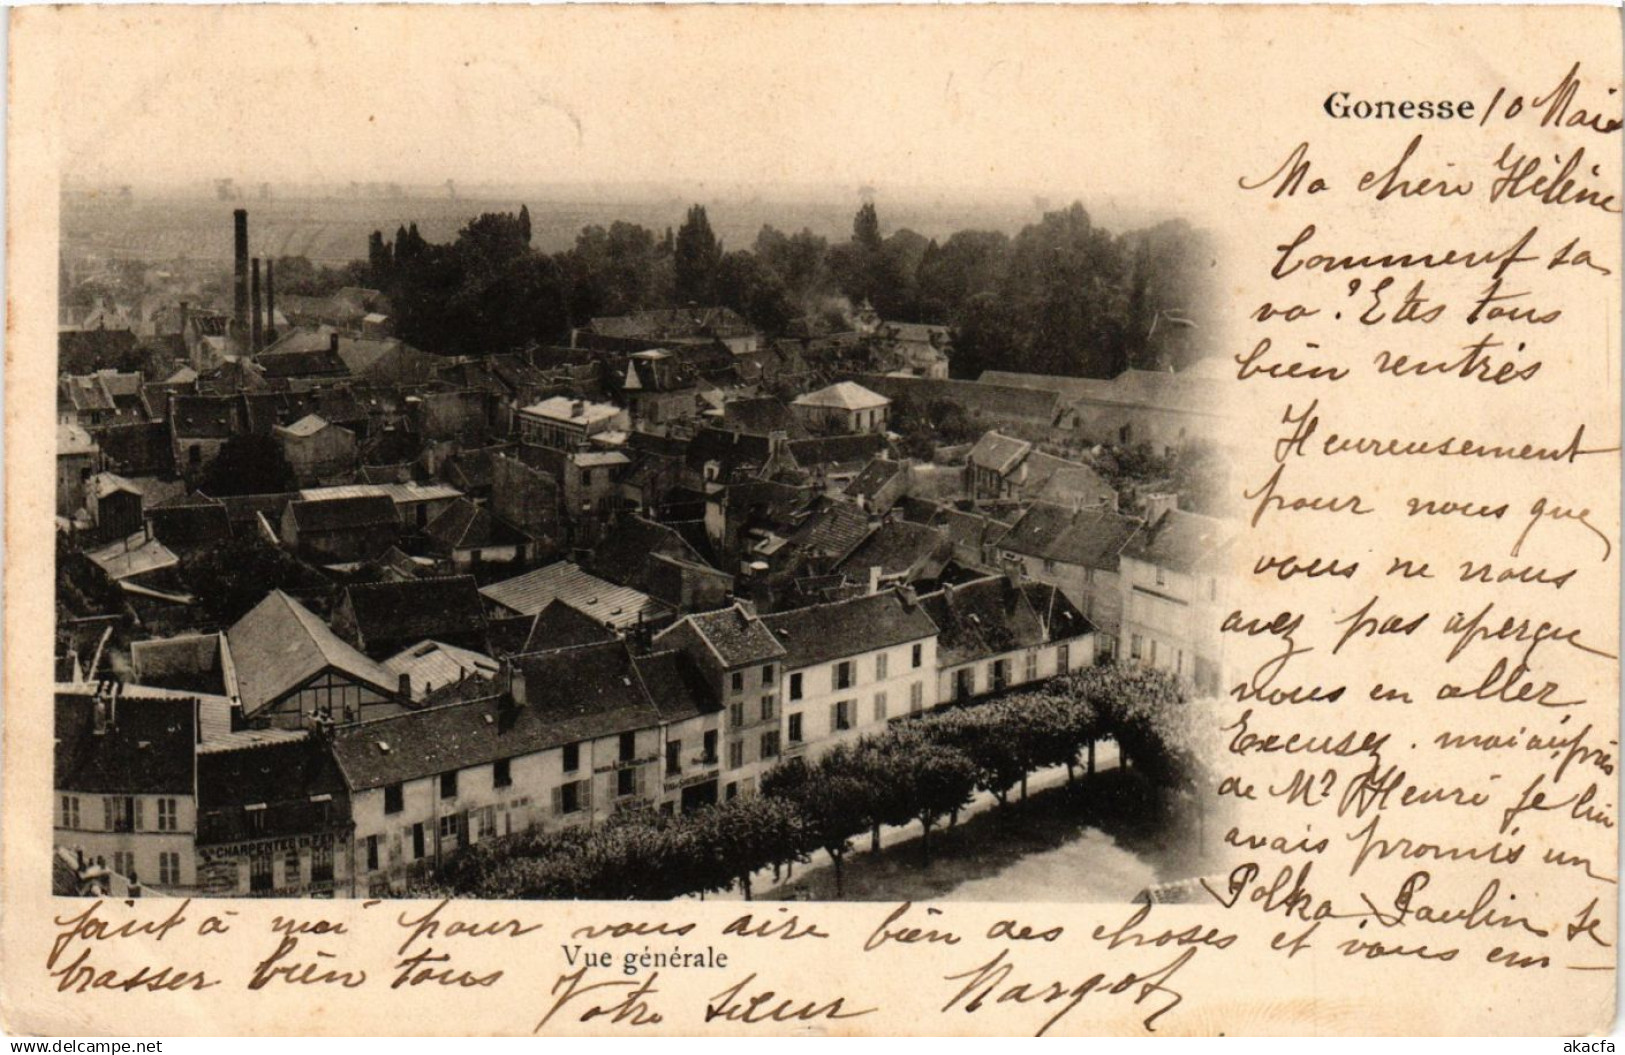 Gonesse 10 Mai
Ma chèri Hélène
Comment sa
va ? Etes tous
bien rentrés
Heureusement
pour nous que
vous ne nous
avez pas aperçu
nous en aller
Excusez. moi auprès
de Mr Henri je lui
avais promis un
Polka. Paulin se
joint à moi pour vous dire bien des choses et vous em-
brasser bien tous
Votre Sœur Margot
Vue générale
CHARPENTES EN FER
akacfa
delcampe.net